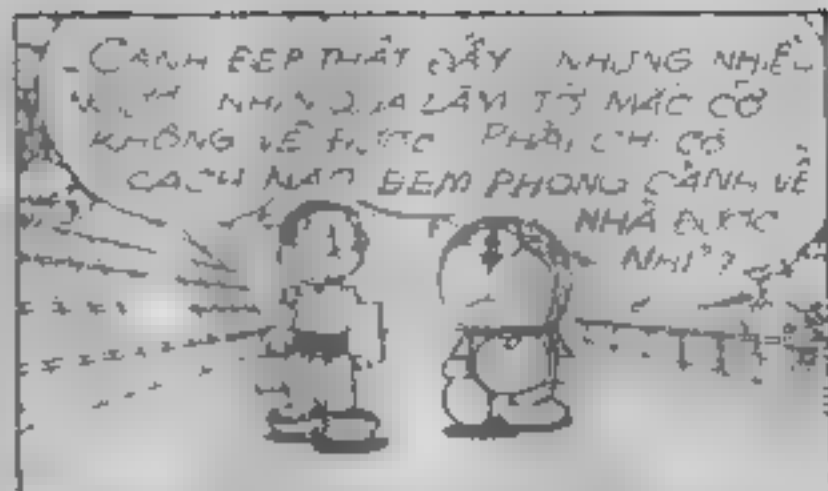 - CẢNH ĐẸP THẬT ĐẤY NHƯNG NHIỀU
NHÌN QUA LẮM TỚ MẮC CỠ
KHÔNG VẼ ĐƯỢC PHẢI CHI CÓ
CÁCH NÀO ĐEM PHONG CẢNH VỀ
NHÀ ĐƯỢC
NHỈ?